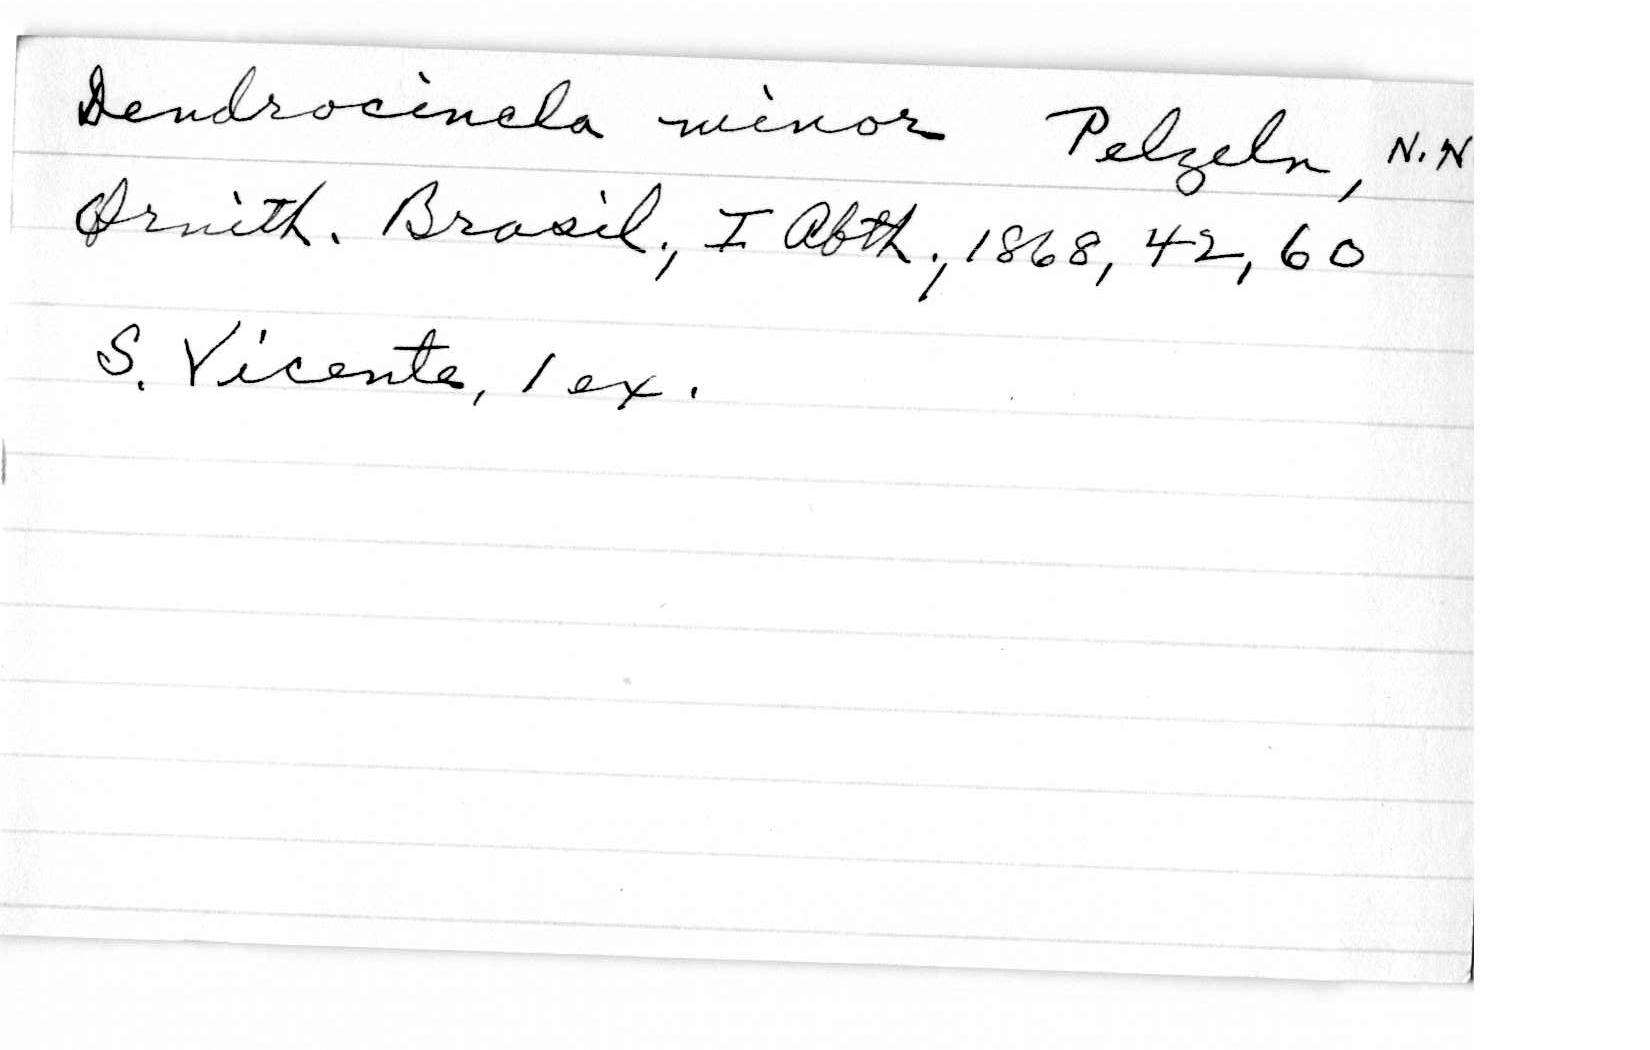 Dendrocincla minor Pelzeln, N.N
Ornith. Brasil., I Abth., 1868, 42, 60
S. Vicente, 1 ex.